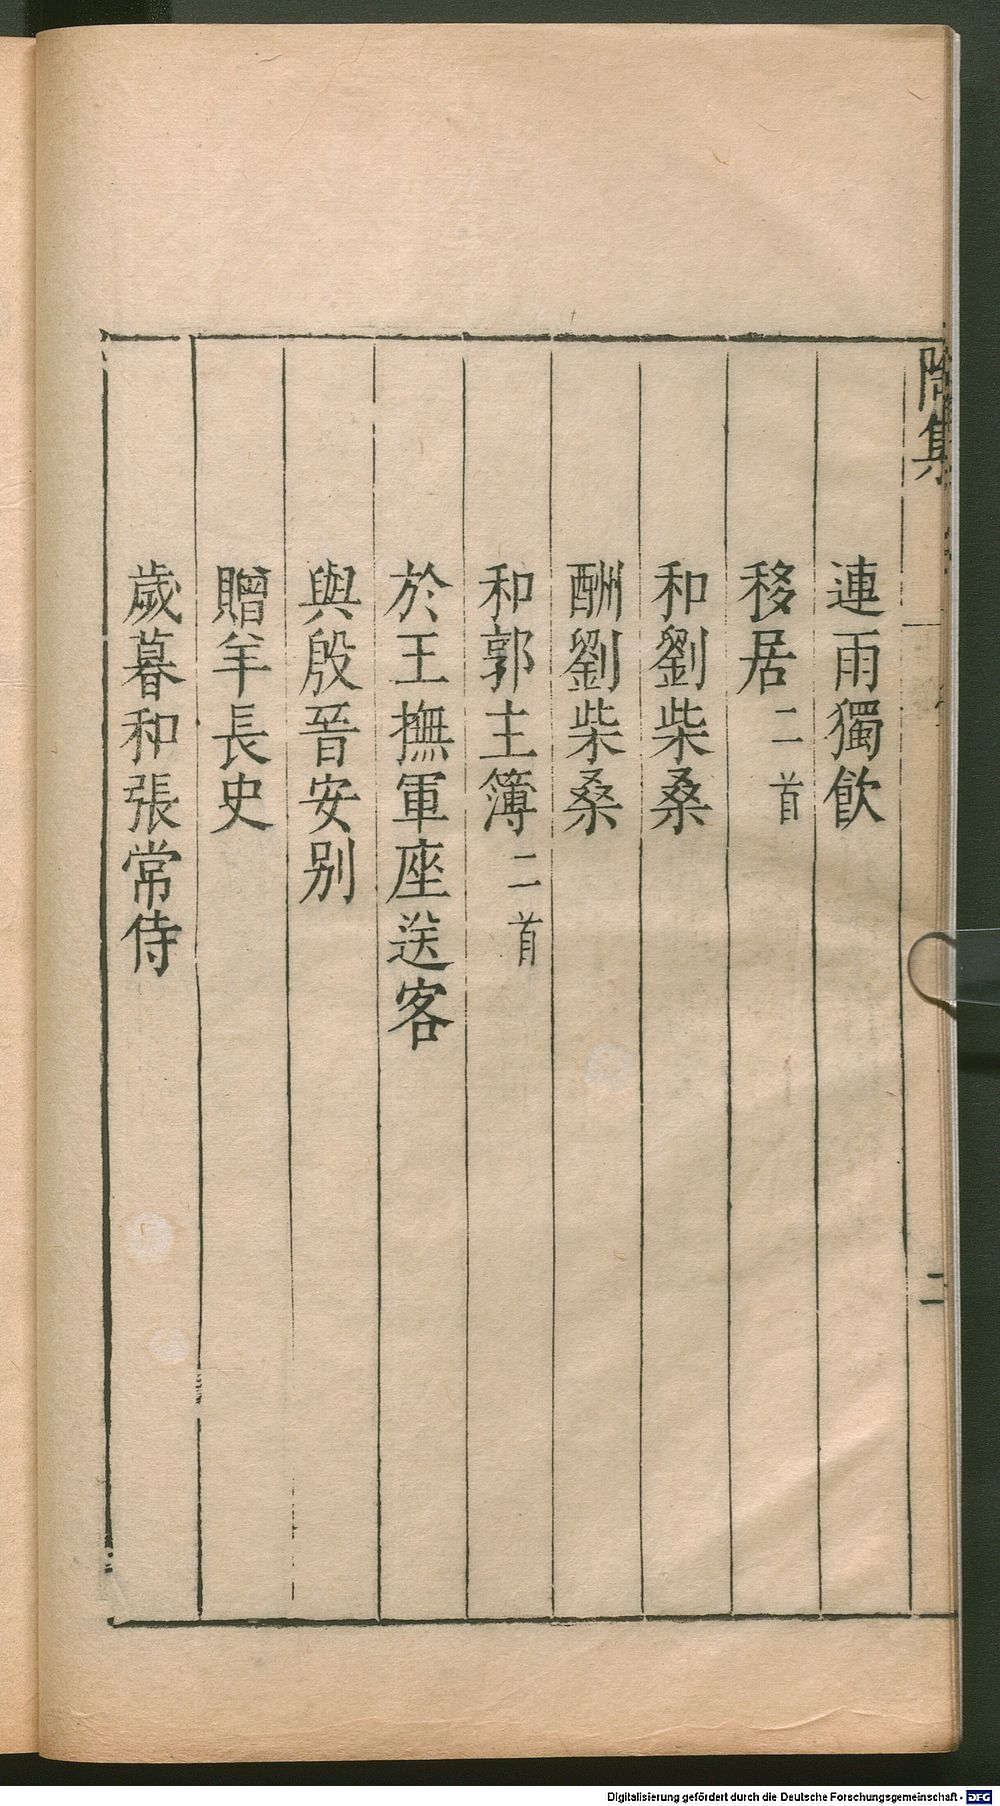 陶集
二
連雨獨飲
移居二首
和劉柴桑
酬劉柴桑
和郭主簿二首
於王撫軍座送客
與殷晉安别
贈羊長史
歲暮和張常侍
Digitalisierung gefördert durch die Deutsche Forschungsgemeinschaft - DFG